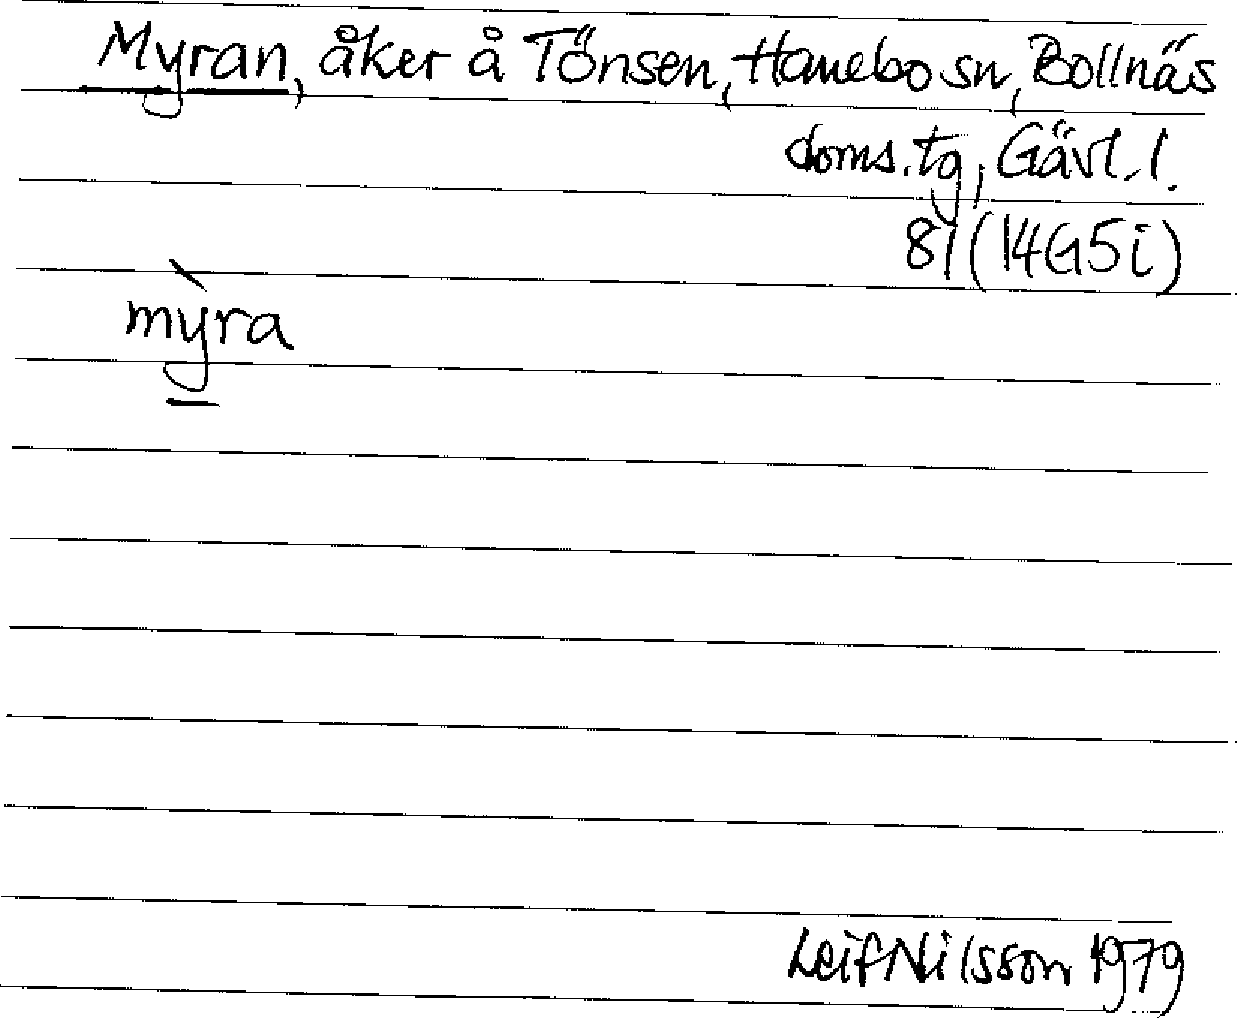 Myran, åker å Tönsen, Hanebo sn, Bollnäs
doms.tg, Gävl.l.
81 (14G5i)
mỳra
Leif Nilsson 1979